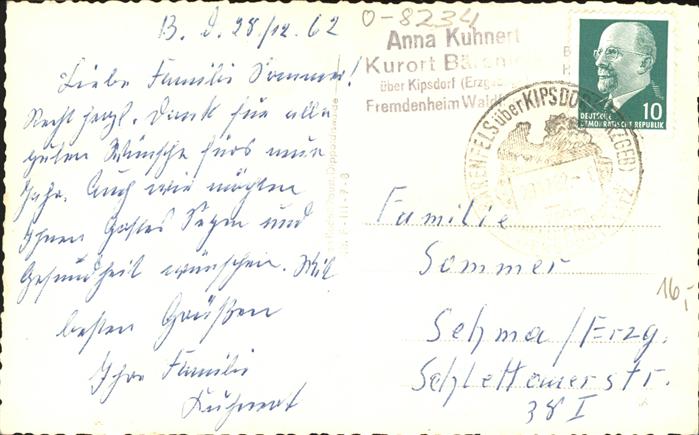 B. d. 28/12. 62
Liebe Familie Sommer!
Recht herzl. Dank für alle
guten Wünsche fürs neue
Jahr. Auch wir möchten
Ihnen Gottes Segen und
Gesundheit wünschen. Mit
besten Grüßen
Ihre Familie
Kuhnert
O-8234
Anna Kuhnert
Kurort Bärenf
über Kipsdorf (Erzg
Fremdenheim Wald
ÄRENFELS über KIPSDORF (ERZGEB)
DEUTSCHE
DEMOKRATISCHE REPUBLIK
10
Familie
Sommer
16,-
Sehma/Erzg.
Schlettauerstr.
38 I